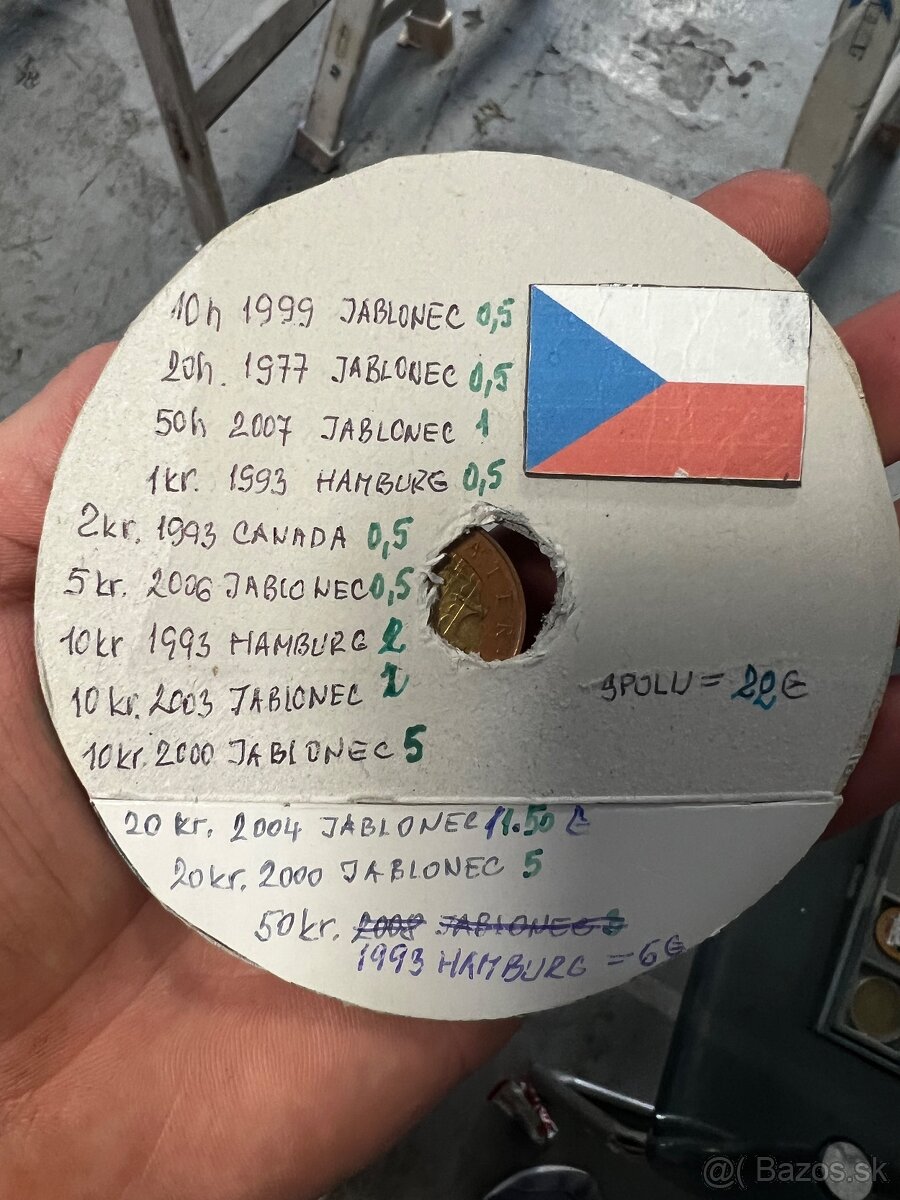 10h 1999 JABLONEC 0,5
20h. 1977 JABLONEC 0,5
50h 2007 JABLONEC 1
1kr. 1993 HAMBURG 0,5
2kr. 1993 CANADA 0,5
5kr. 2006 JABLONEC 0,5
10kr 1993 HAMBURG 2
10kr. 2003 JABLONEC
10kr. 2000 JABLONEC 5
SPOLU = 22€
20 kr. 2004 JABLONEC 1.50 €
20kr. 2000 JABLONEC 5
50kr. 2008 JABLONEC
1993 HAMBURG = 6€
@( Bazos.sk